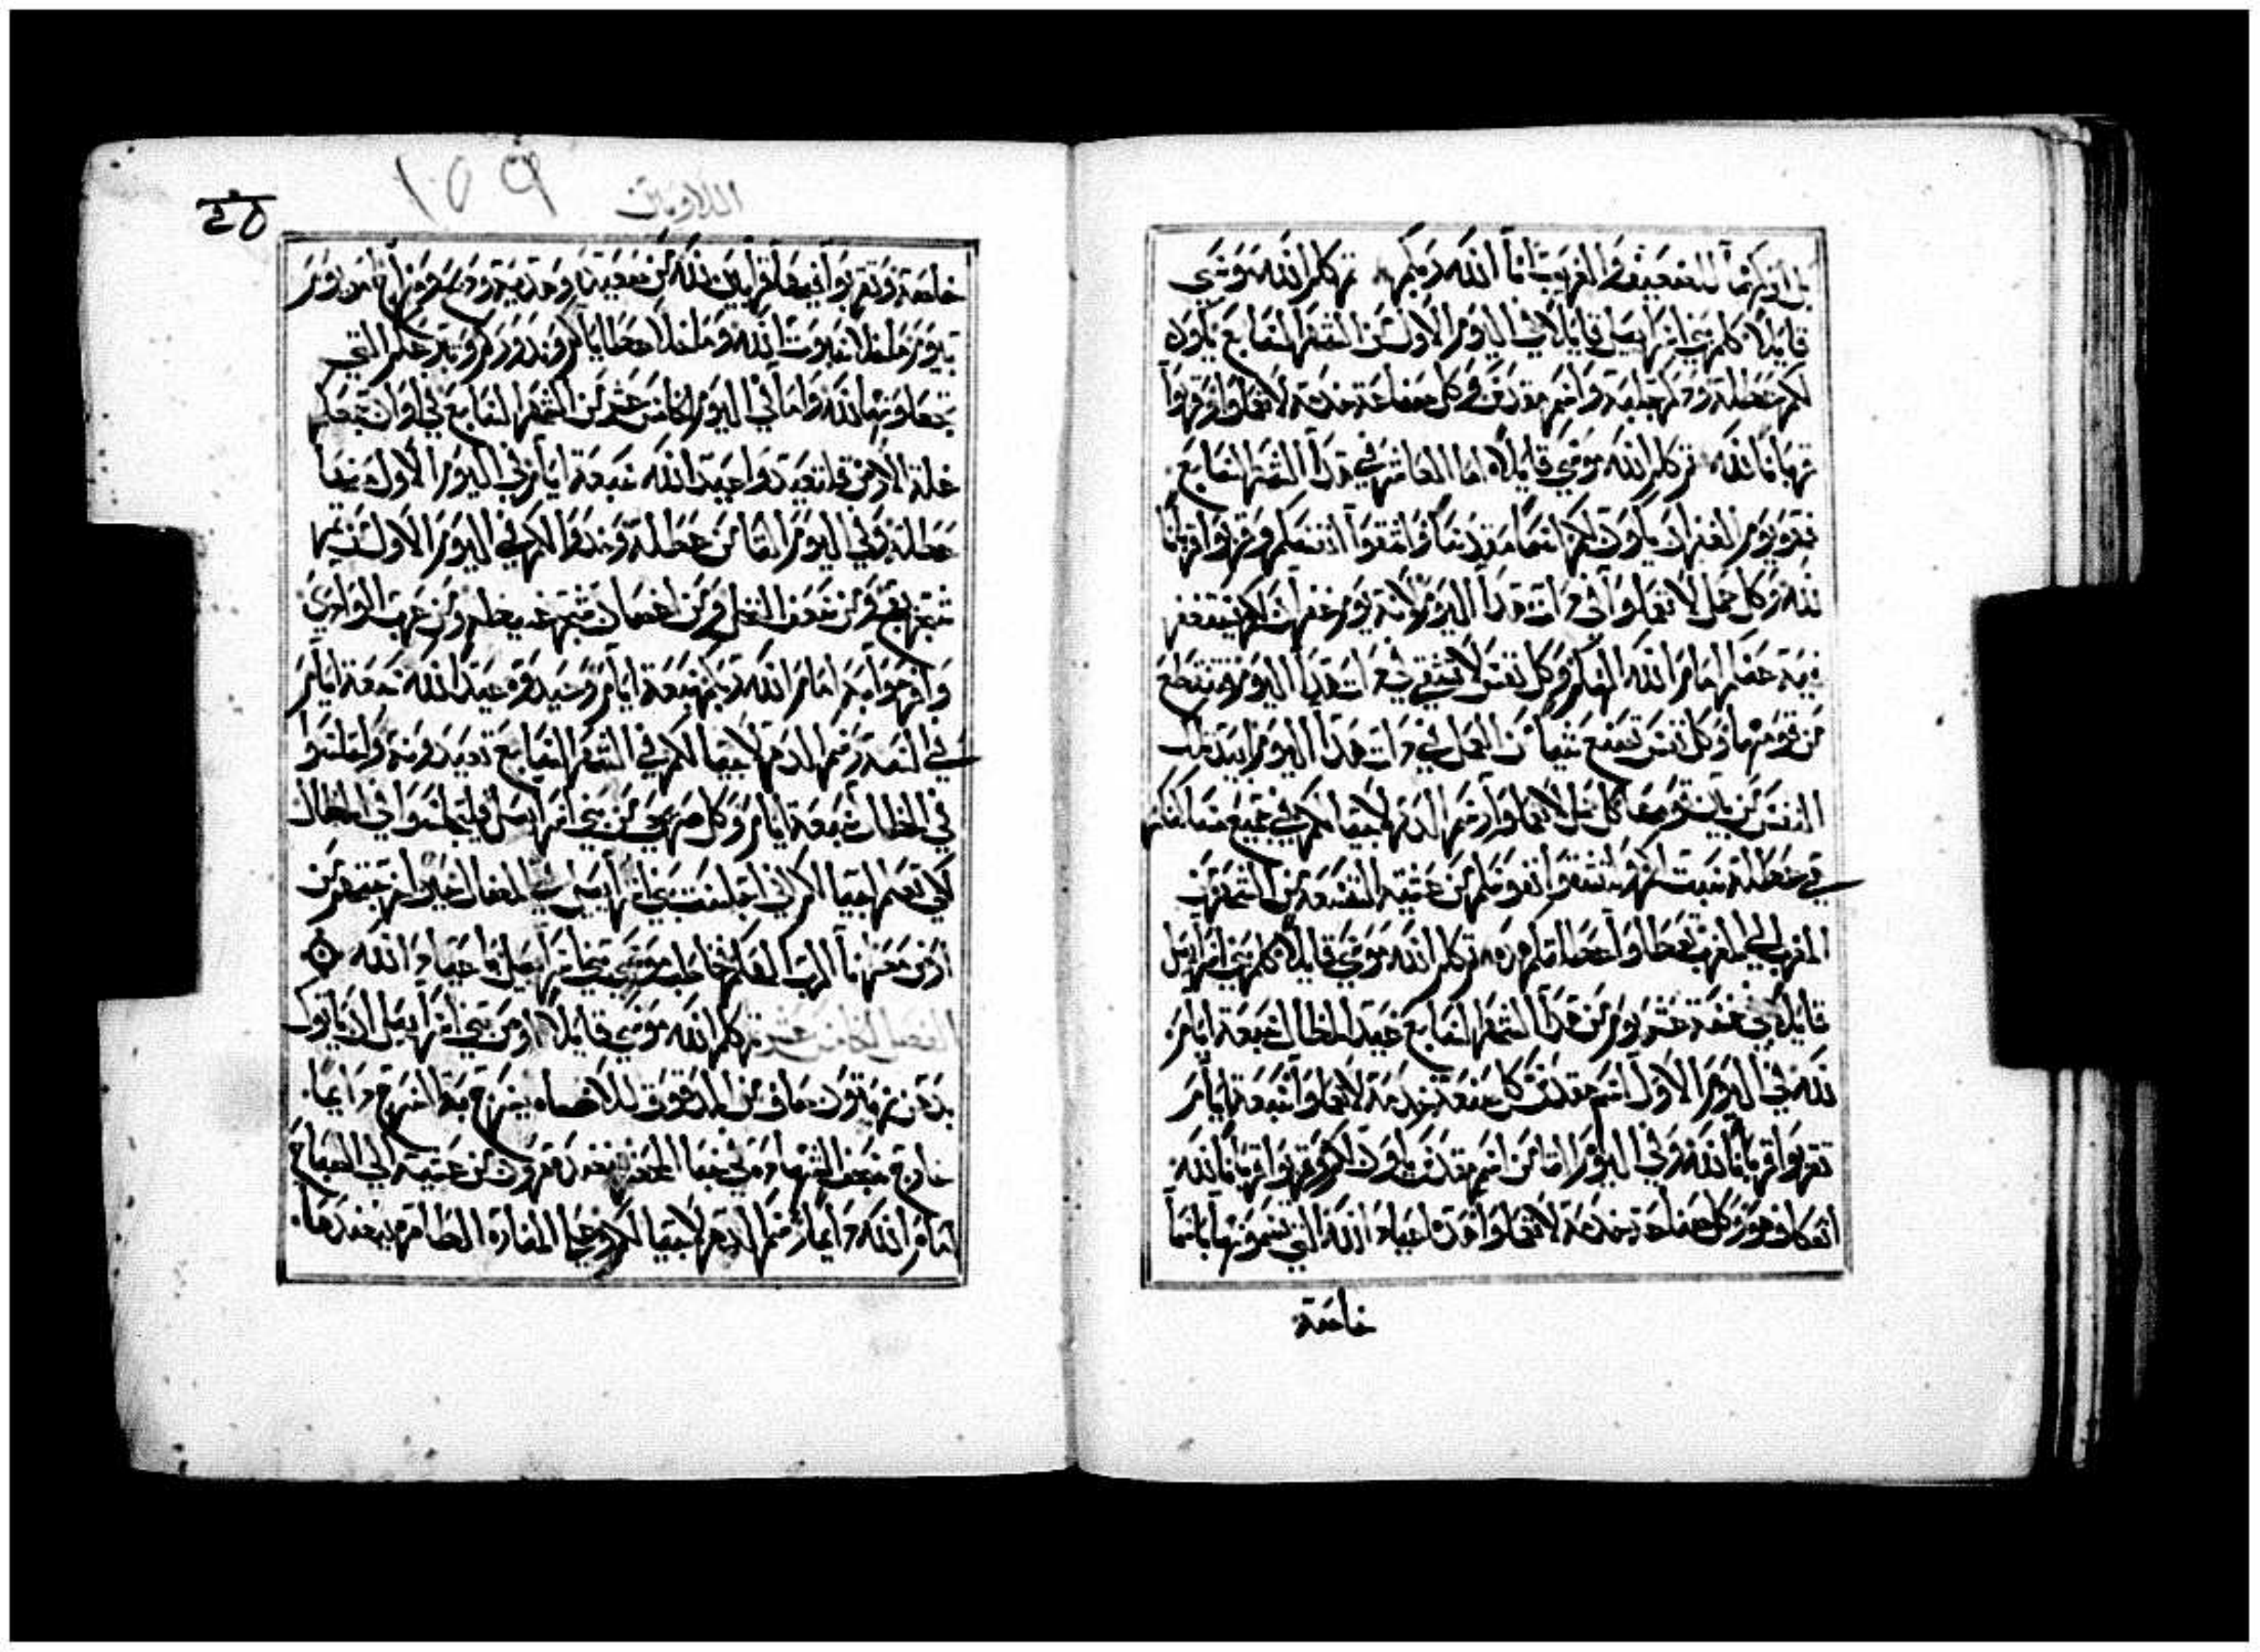 بل اتركها للضعيف والغريب انا الله ربكم ثم كلم الله موسى
قايلا كلم بني اسراييل قايلا في اليوم الاول من الشهر السابع يكون
لكم عطلة وذكر جلبة واسم مقدس وكل صناعة خدمة لا تعملوا وقربوا
قربانا لله ثم كلم الله موسى قايلا اما العاشر في هذا الشهر السابع
فهو يوم الغفران يكون لكم اسما مقدسا واشقوا انفسكم وقربوا قربانا
لله وكل عمل لا تعملوا في ذات هذا اليوم لانه يوم غفران لكم ليستغفر
فيه عنكم امام الله الهكم وكل نفس لا تشقى في ذات هذا اليوم فتنقطع
من قومها وكل نفس تصنع شيا من العمل في ذات هذا اليوم ابيد تلك
النفس من بين قومها كل عمل لا تعملوا رسم الدهر لاجيالكم في جميع مساكنكم
في عطلة سبت لكم واشقوا نفوسكم من عشية التسعة من الشهر من
المغرب الى المغرب تعطلوا عطلتكم ثم كلم الله موسى قايلا كلم بني اسراييل
قايلا في خمسة عشر يوم من هذا الشهر السابع عيد المظال سبعة ايام
لله في اليوم الاول اسم مقدس كل صنعة خدمة لا تعملوا سبعة ايام
تقربوا قربانا لله وفي اليوم الثامن اسم مقدس يكون لكم وقربوا قربانا لله
اعتكاف هو وكل صناعة خدمة لا تعملوا هذه اعياد الله التي تسمونها باسما
خاصة
اللاويين
١٥٩
خاصة وتقربوا فيها قرابين لله من صعيدة وهدية وذبح ومزاج امر يوم
بيوم ما خلا سبوت الله وما خلا عطاياكم ونذوركم وتبرعكم التي
تجعلونها لله واما في اليوم الخامس عشر من الشهر السابع في اوان جمعكم
غلة الارض فلتعيدوا عيد الله سبعة ايام في اليوم الاول منها
عطلة وفي اليوم الثامن عطلة وخذوا لكم في اليوم الاول من ثمر
شجر بهي ومن سعف النخل ومن اغصان شجر غير عظيم ومن غرب الوادي
وافرحوا به امام الله ربكم سبعة ايام وعيدوه عيدا لله سبعة ايام
في السنة رسم الدهر لاجيالكم في الشهر السابع تعيدونه واجلسوا
في المظال سبعة ايام وكل صريح من بني اسراييل فليجلسوا في المظال
لكي تعلم اجيالكم اني اجلست بني اسراييل في المظال حين اخرجتهم من
ارض مصر انا الرب الهكم خاطب موسى بني اسراييل باعياد الله
الفصل الثامن عشر ثم كلم الله موسى قايلا اوص بني اسراييل ان ياتوك
بدهن زيتون صاف من المدقوق للاضاة يسرج به السرج دايما
خارج سجف الشهادة في خبا المحضر ينضده هرون من عشية الى الصباح
امام الله دايما رسم الدهر لاجيالكم وعلى المنارة الطاهرة ينضدها